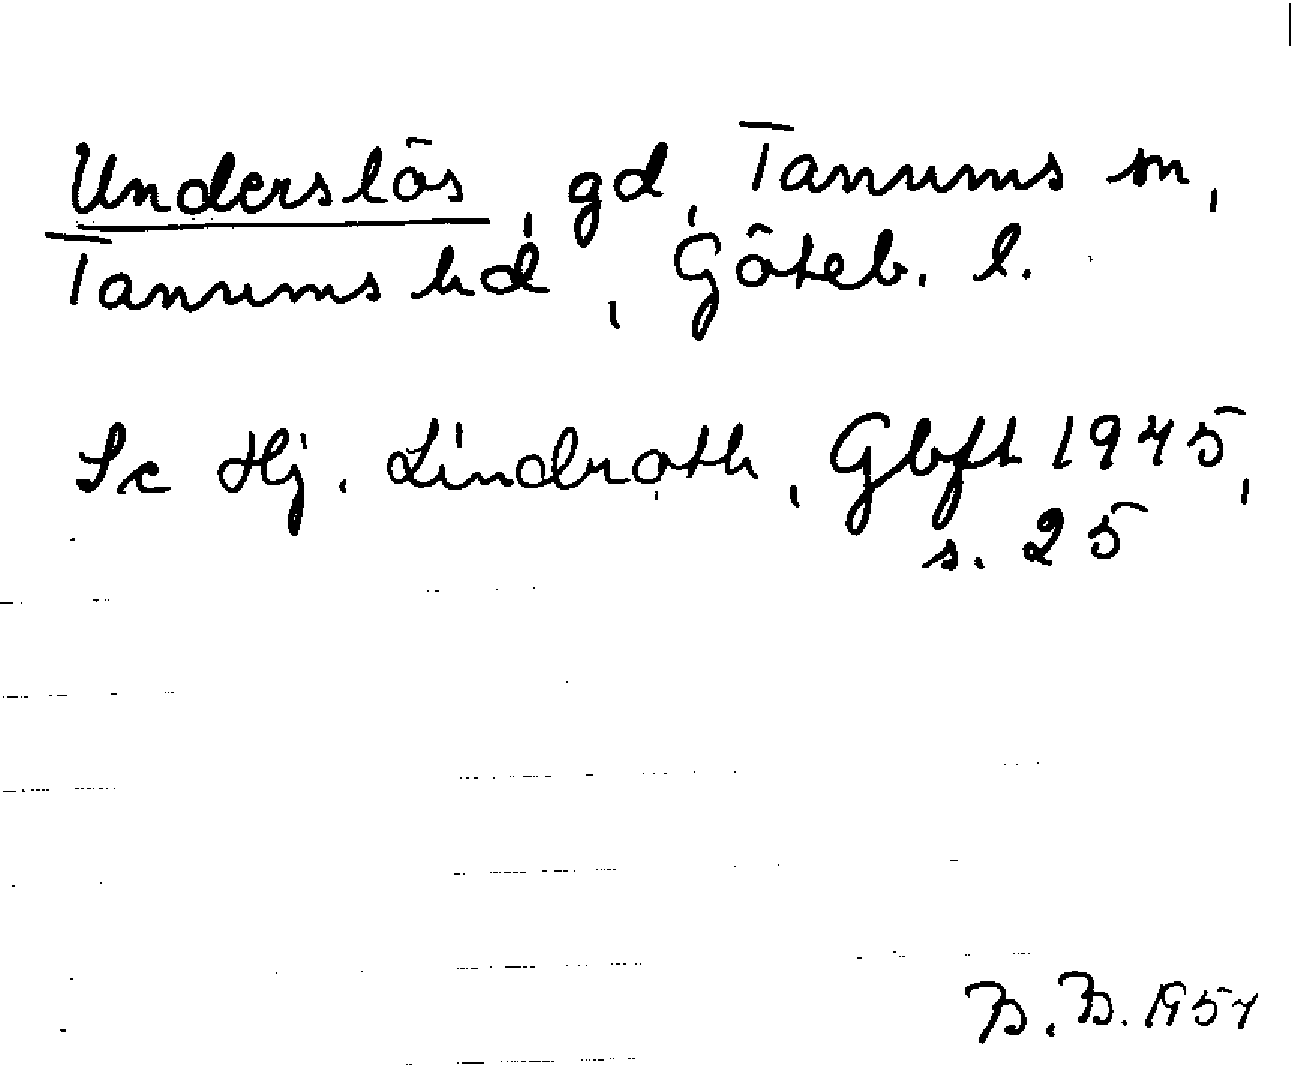 Underslös, gd, Tanums sn,
Tanums hd, Göteb. l.
Se Hj. Lindroth, Gbft 1945,
s. 25
B. B. 1954